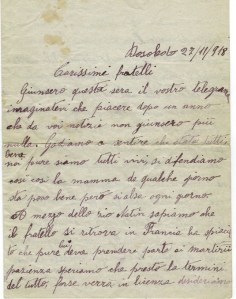 Dosoledo 23/11/918
Carissimi fratelli
Giunsero questa sera il vostro telegram
imaginatevi che piacere dopo un anno
che da voi notizie non giunsero più
nulla. Godiamo a sentire che state tutti
bene noi pure siamo tutti vivi si difendiamo
così così la mamma da qualche giorno
sta poco bene però si alse ogni giorno
Al mezzo dello zio sapiamo che
il fratello si ritrova in Francia he spiace
to che pure lui deva prendere parte ai martirii
pasienza speriamo che presto la termini
del tutto, forse verrà in licenza desiderosi